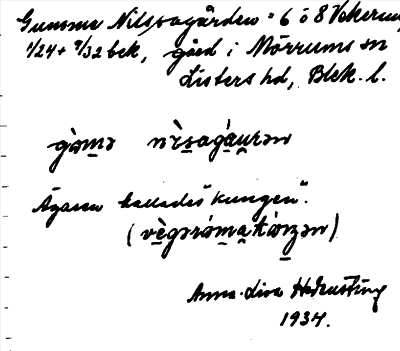 Gumme Nilssagården = 6 o 8 Vekerum,
1/24 + 9/32 bek, gård i Mörrums sn
Listers hd, Blek. l.
gòmə nìsagáurən
Ägaren kallades "kungen".
(vègərómakóŋən)
Anna-Lisa
1934.